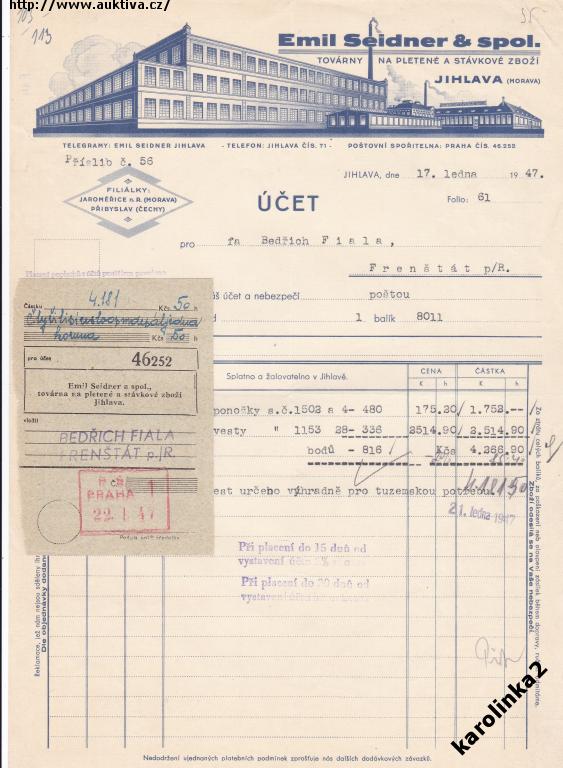 http://www.auktiva.cz/
113
35-
Emil Seidner & spol.
TOVÁRNY NA PLETENÉ A STÁVKOVÉ ZBOŽÍ
JIHLAVA (MORAVA)
TELEGRAMY: EMIL SEIDNER JIHLAVA - TELEFON: JIHLAVA ČÍS. 71 - POŠTOVNÍ SPOŘITELNA: PRAHA ČÍS. 46.252
Příslib č. 56
JIHLAVA, dne 17. ledna 1947.
FILIÁLKY:
JAROMĚŘICE n. R. (MORAVA)
PŘIBYSLAV (ČECHY)
ÚČET
Folio: 61
pro fa Bedřich Fiala,
Frenštát p/R.
áš účet a nebezpečí poštou
d 1 balík 8011
Částku 4.181 Kčs 50 h
koruna Kčs 50 h
pro účet 46252
Emil Seidner a spol.,
továrna na pletené a stávkové zboží
Jihlava.
vložil
BEDŘICH FIALA
FRENŠTÁT p./R.
P. S. 1
PRAHA
22. I. 47
Splatno a žalovatelno v Jihlavě.
CENA ČÁSTKA
K h K h
ponožky s.č.1502 a 4- 480 175.20 1.752.--
vesty " 1153 28- 336 2514.90 2.514.90
bodů - 816 Kčs 4.266.90
est určeno výhradně pro tuzemskou potřebu.
21. ledna 1947
Při placení do 15 dnů od
vystavení účtu
Při placení do 30 dnů od
vystavení účtu
Reklamace, jež nám nejsou sděleny
Dle objednávky dodano
Zboží odesílá se na Vaše nebezpečí.
Nedodržení ujednaných platebních podmínek zprošťuje nás dalších dodávkových závazků.
karolinka2